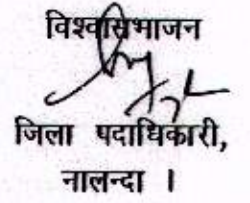 विश्वासभाजन
जिला पदाधिकारी,
नालन्दा ।